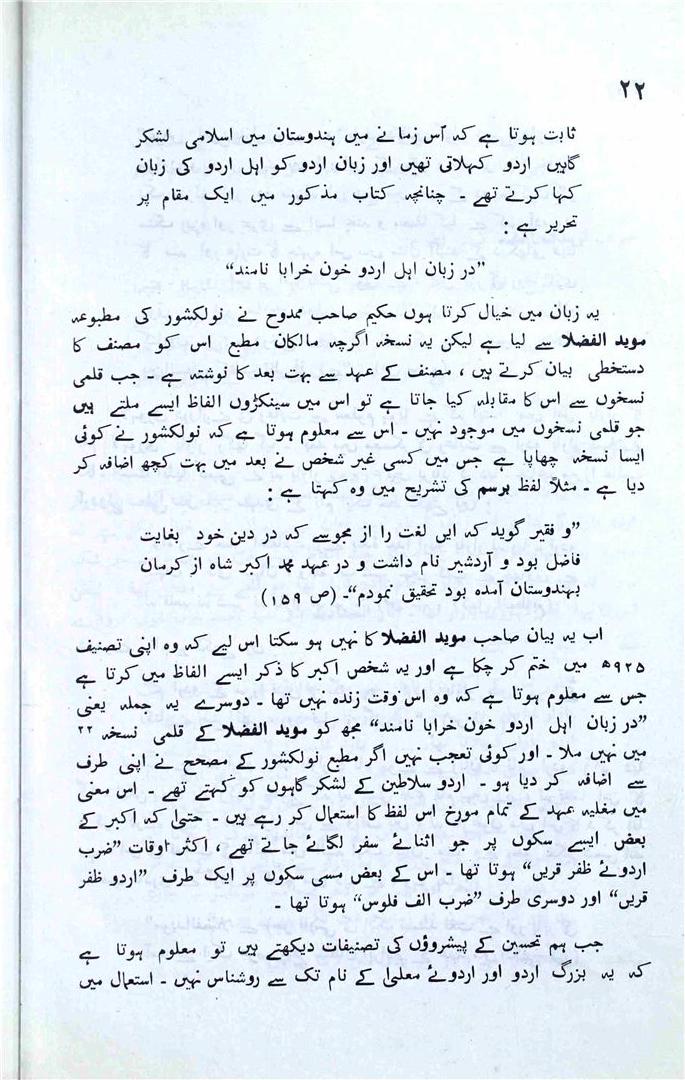 ۲۲
ثابت ہوتا ہے کہ اُس زمانے میں ہندوستان میں اسلامی لشکر
گاہیں اردو کہلاتی تھیں اور زبان اردو کو اہل اردو کی زبان
کہا کرتے تھے ۔ چنانچہ کتاب مذکور میں ایک مقام پر
تحریر ہے :
”در زبان اہل اردو خون خرابا نامند“
یہ زبان میں خیال کرتا ہوں حکیم صاحب ممدوح نے نولکشور کی مطبوعہ
موید الفضلا سے لیا ہے لیکن یہ نسخہ اگرچہ مالکان مطبع اس کو مصنف کا
دستخطی بیان کرتے ہیں ، مصنف کے عہد سے بہت بعد کا نوشتہ ہے ۔ جب قلمی
نسخوں سے اس کا مقابلہ کیا جاتا ہے تو اس میں سینکڑوں الفاظ ایسے ملتے ہیں
جو قلمی نسخوں میں موجود نہیں ۔ اس سے معلوم ہوتا ہے کہ نولکشور نے کوئی
ایسا نسخہ چھاپا ہے جس میں کسی غیر شخص نے بعد میں بہت کچھ اضافہ کر
دیا ہے ۔ مثلاً لفظ برسم کی تشریح میں وہ کہتا ہے :
”و فقیر گوید کہ ایں لغت را از مجوسے کہ در دین خود بغایت
فاضل بود و آردشیر نام داشت و در عہد محمد اکبر شاہ از کرمان
بہندوستان آمدہ بود تحقیق نمودم“۔ (ص ۱۵۹)
اب یہ بیان صاحب موید الفضلا کا نہیں ہو سکتا اس لیے کہ وہ اپنی تصنیف
۹۲۵ھ میں ختم کر چکا ہے اور یہ شخص اکبر کا ذکر ایسے الفاظ میں کرتا ہے
جس سے معلوم ہوتا ہے کہ وہ اس وقت زندہ نہیں تھا ۔ دوسرے یہ جملہ یعنی
”در زبان اہل اردو خون خرابا نامند“ مجھ کو موید الفضلا کے قلمی نسخہ ۲۲
میں نہیں ملا ۔ اور کوئی تعجب نہیں اگر مطبع نولکشور کے مصحح نے اپنی طرف
سے اضافہ کر دیا ہو ۔ اردو سلاطین کے لشکر گاہوں کو کہتے تھے ۔ اس معنی
میں مغلیہ عہد کے تمام مورخ اس لفظ کا استعمال کر رہے ہیں ۔ حتیٰ کہ اکبر کے
بعض ایسے سکوں پر جو اثنائے سفر لگائے جاتے تھے ، اکثر اوقات ”ضرب
اردوئے ظفر قریں“ ہوتا تھا ۔ اس کے بعض مسی سکوں پر ایک طرف ”اردو ظفر
قریں“ اور دوسری طرف ”ضرب الف فلوس“ ہوتا تھا ۔
جب ہم تحسین کے پیشروؤں کی تصنیفات دیکھتے ہیں تو معلوم ہوتا ہے
کہ یہ بزرگ اردو اور اردوئے معلیٰ کے نام تک سے روشناس نہیں ۔ استعمال میں